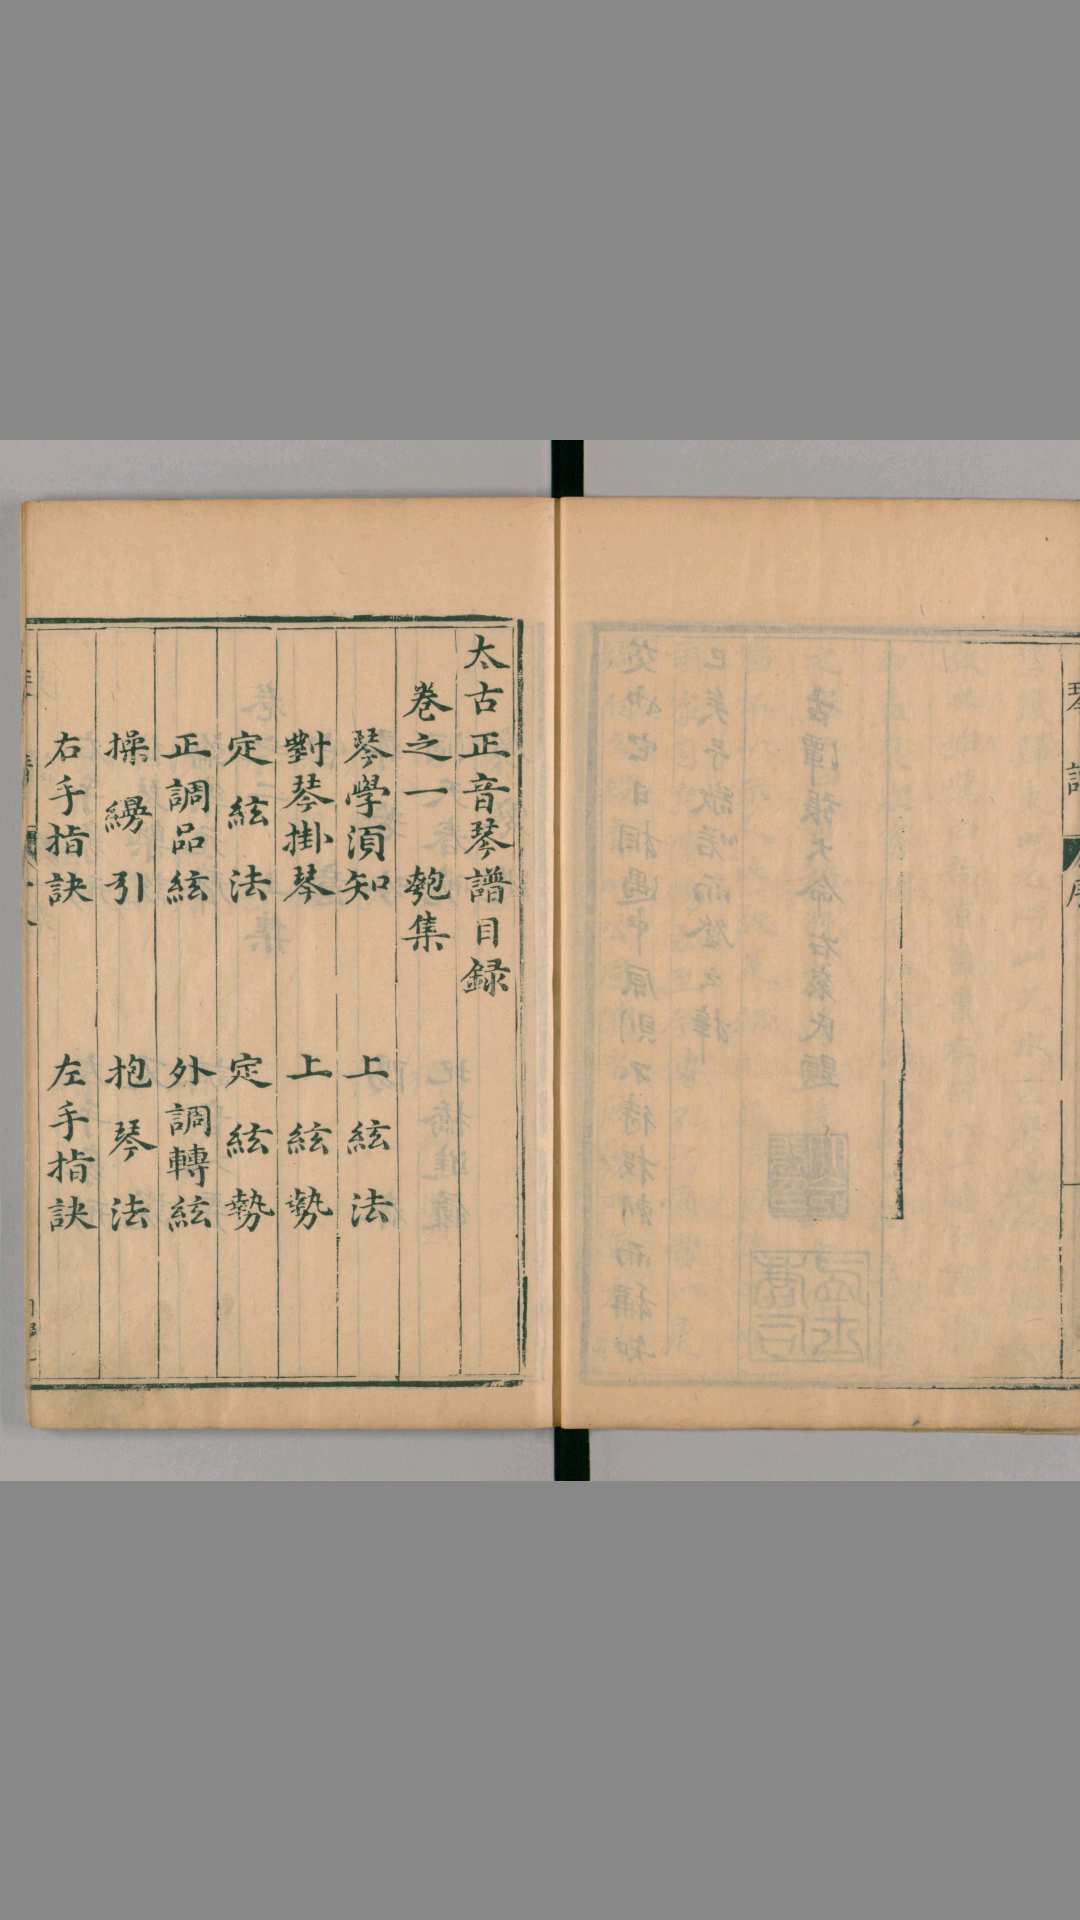 琴譜
序
太古正音琴譜目録
卷之一 匏集
琴學須知 上絃法
對琴掛琴 上絃勢
定絃法 定絃勢
正調品絃 外調轉絃
操縵引 抱琴法
右手指訣 左手指訣